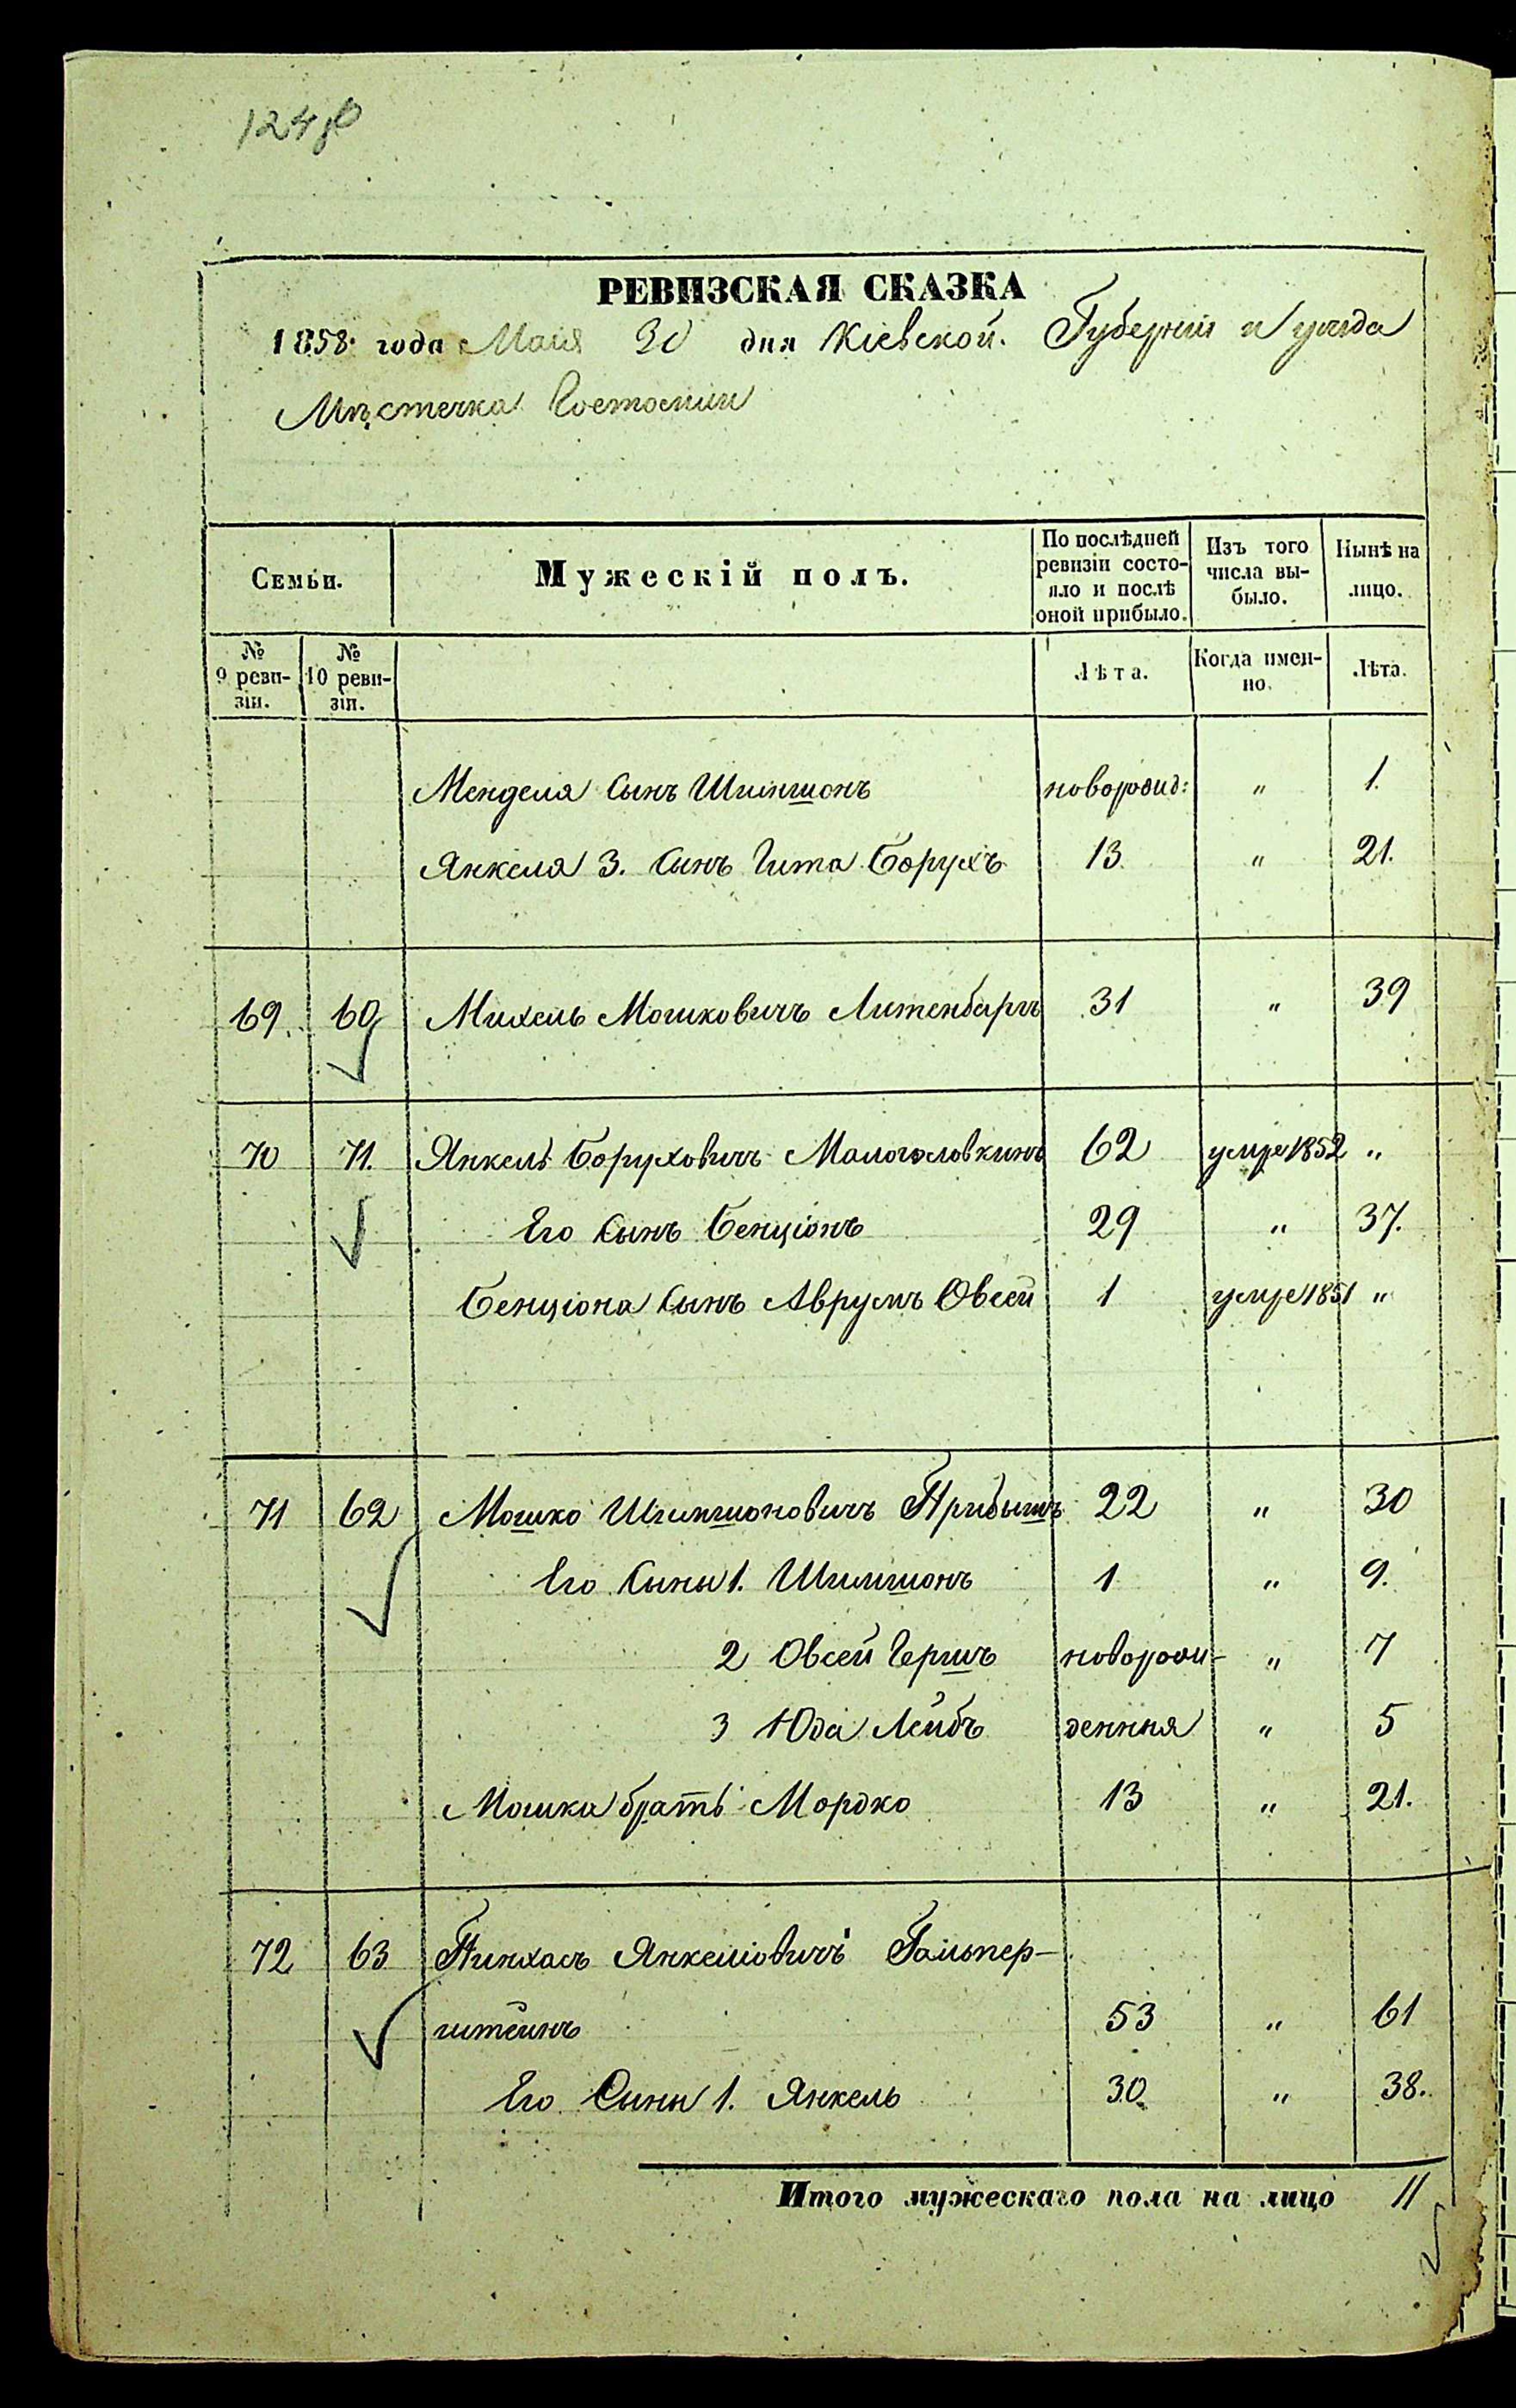 124об
РЕВИЗСКАЯ СКАЗКА
1858 года Маія 30 дня Кіевской Губерніи и уѣзда
Мѣстечка Гостомли
Семьи.
Мужескій полъ.
По послѣдней ревизіи состояло и послѣ оной прибыло.
Изъ того числа выбыло.
Нынѣ на лицо.
№ 9 ревизіи.
№ 10 ревизіи.
Лѣта.
Когда именно.
Лѣта.
Менделя Сынъ Шимшонъ новорожд: " 1.
Янкеля 3. Сынъ Гита Борухъ 13 " 21.
69. 60 Михель Мошковичъ Литенбаргъ 31 " 39
70 71. Янкель Боруховичъ Малоголовкинъ 62 умре 1852 "
Его Сынъ Бенціонъ 29 " 37.
Бенціона Сынъ Аврумъ Овсей 1 умре 1851 "
71 62 Мошко Шимшоновичъ Прибышъ 22 " 30
Его Сыны 1. Шимшонъ 1 " 9.
2 Овсей Гершъ новорож- " 7
3 Юда Лейбъ денныя " 5
Мошка братъ Мордко 13 " 21.
72 63 Пинхасъ Янкеліовичъ Гальпер-
штейнъ 53 " 61
Его Сыны 1. Янкель 30 " 38.
Итого мужескаго пола на лицо 11